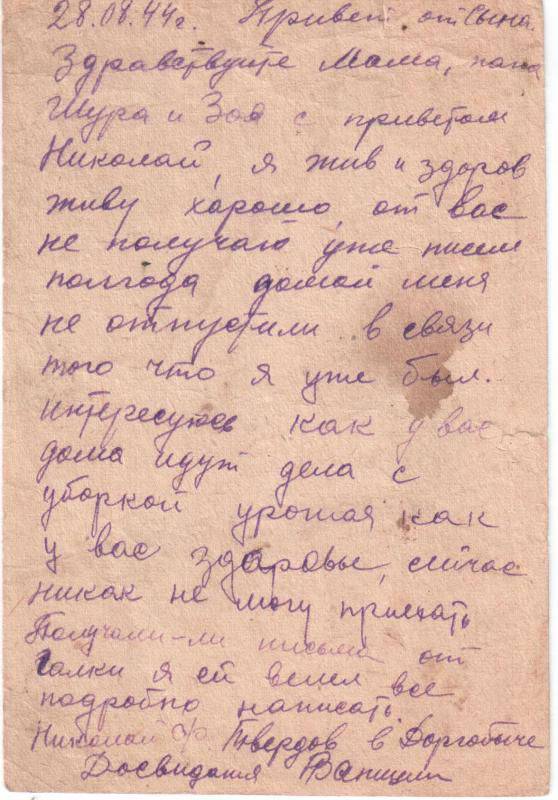 28.08.44г. Привет от Сына.
Здравствуйте Мама, папа
Шура и Зоя с приветом
Николай, я жив и здоров
живу хорошо, от вас
не получаю уже писем
полгода домой меня
не отпустили в связи
того что я уже был.
интересуюсь как у вас
дома идут дела с
уборкой урожая как
у вас здоровье, сейчас
никак не могу приехать
Получали-ли письма от
Галки я ей велел все
подробно написать.
Николай Твердов в
Досвидания